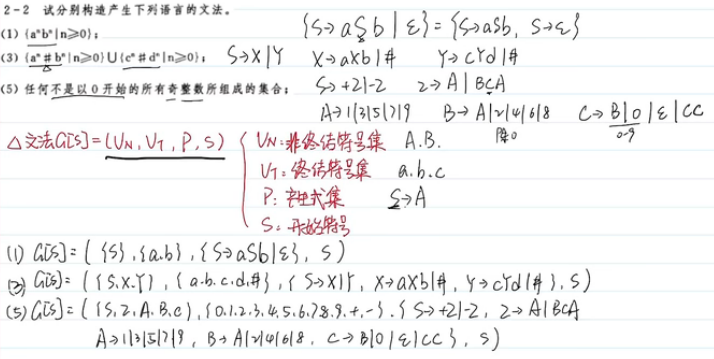 2-2 试分别构造产生下列语言的文法。
(1) {aⁿbⁿ|n≥0}; {S→aSb|ε}={S→aSb, S→ε}
(3) {aⁿ#bⁿ|n≥0}∪{cⁿ#dⁿ|n≥0}; S→X|Y X→aXb|# Y→cYd|#
(5) 任何不是以0开始的所有奇整数所组成的集合; S→+Z|-Z Z→A|BCA
A→1|3|5|7|9 B→A|2|4|6|8 C→B|0|ε|CC
除0 0-9
△文法G[S]=(U_N, V_T, P, S) U_N:非终结符号集 A.B.
U_T:终结符号集 a.b.c
P:产生式集 S→A
S:开始符号
(1) G[S]=({S},{a.b},{S→aSb|ε}, S)
(3) G[S]=({S.X.Y},{a.b.c.d.#},{S→X|Y, X→aXb|#, Y→cYd|#}, S)
(5) G[S]=({S,Z,A.B.C},{0.1.2.3.4.5.6.7.8.9.+.-},{S→+Z|-Z, Z→A|BCA
A→1|3|5|7|9, B→A|2|4|6|8, C→B|0|ε|CC}, S)